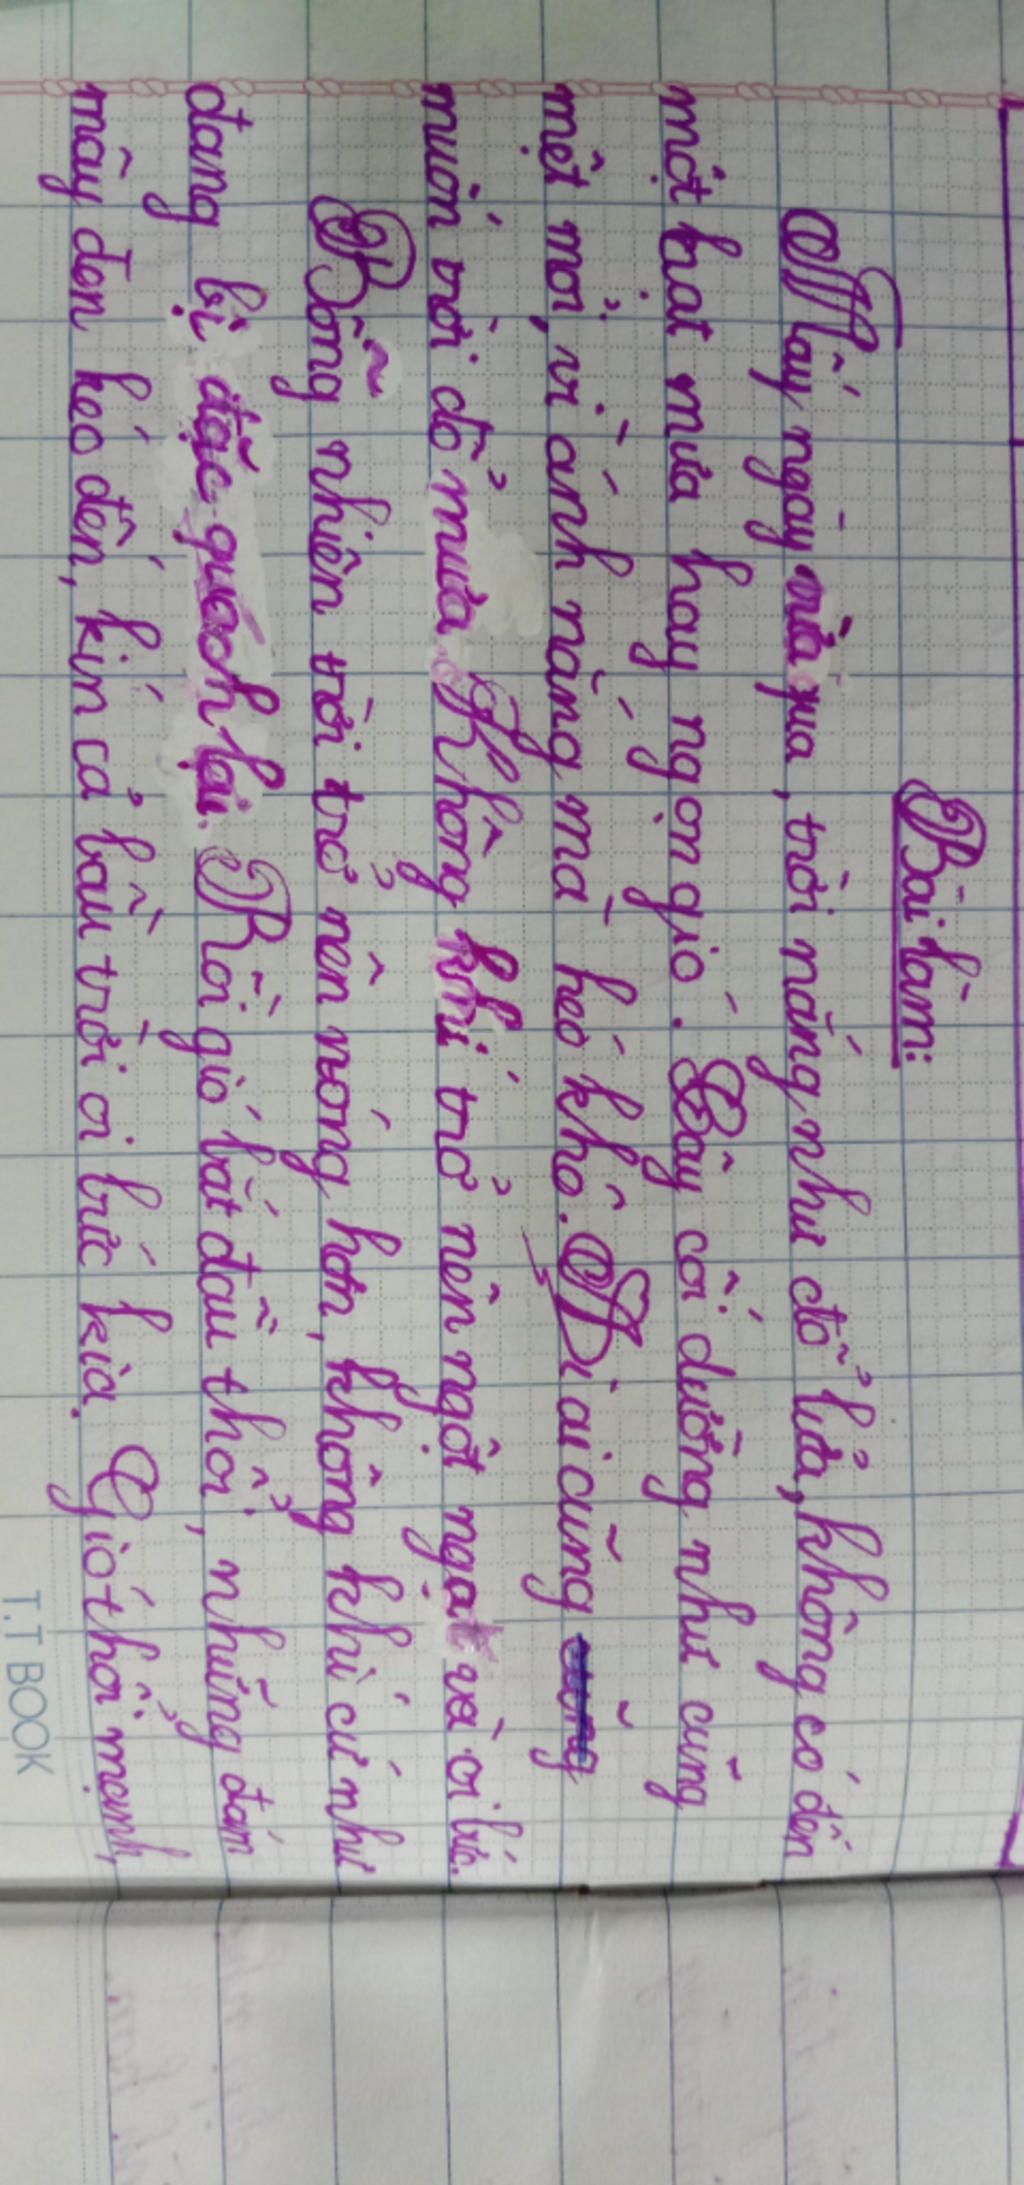 Bài làm:
Mấy ngày vừa qua, trời nắng như đổ lửa, không có đến
một hạt mưa hay ngọn gió. Cây cối dường như cũng
mệt mỏi, vì ánh nắng mà héo khô. Đi ai cũng cũng
muốn trời đổ mưa. Không khí trở nên ngột ngạt và oi bức.
Bỗng nhiên trời trở nên nóng hơn, không khí cứ như
đang bị đặc quạch lại. Rồi gió bắt đầu thổi, những đám
mây đen kéo đến, kín cả bầu trời oi bức kia. Gió thổi mạnh,
T.T BOOK